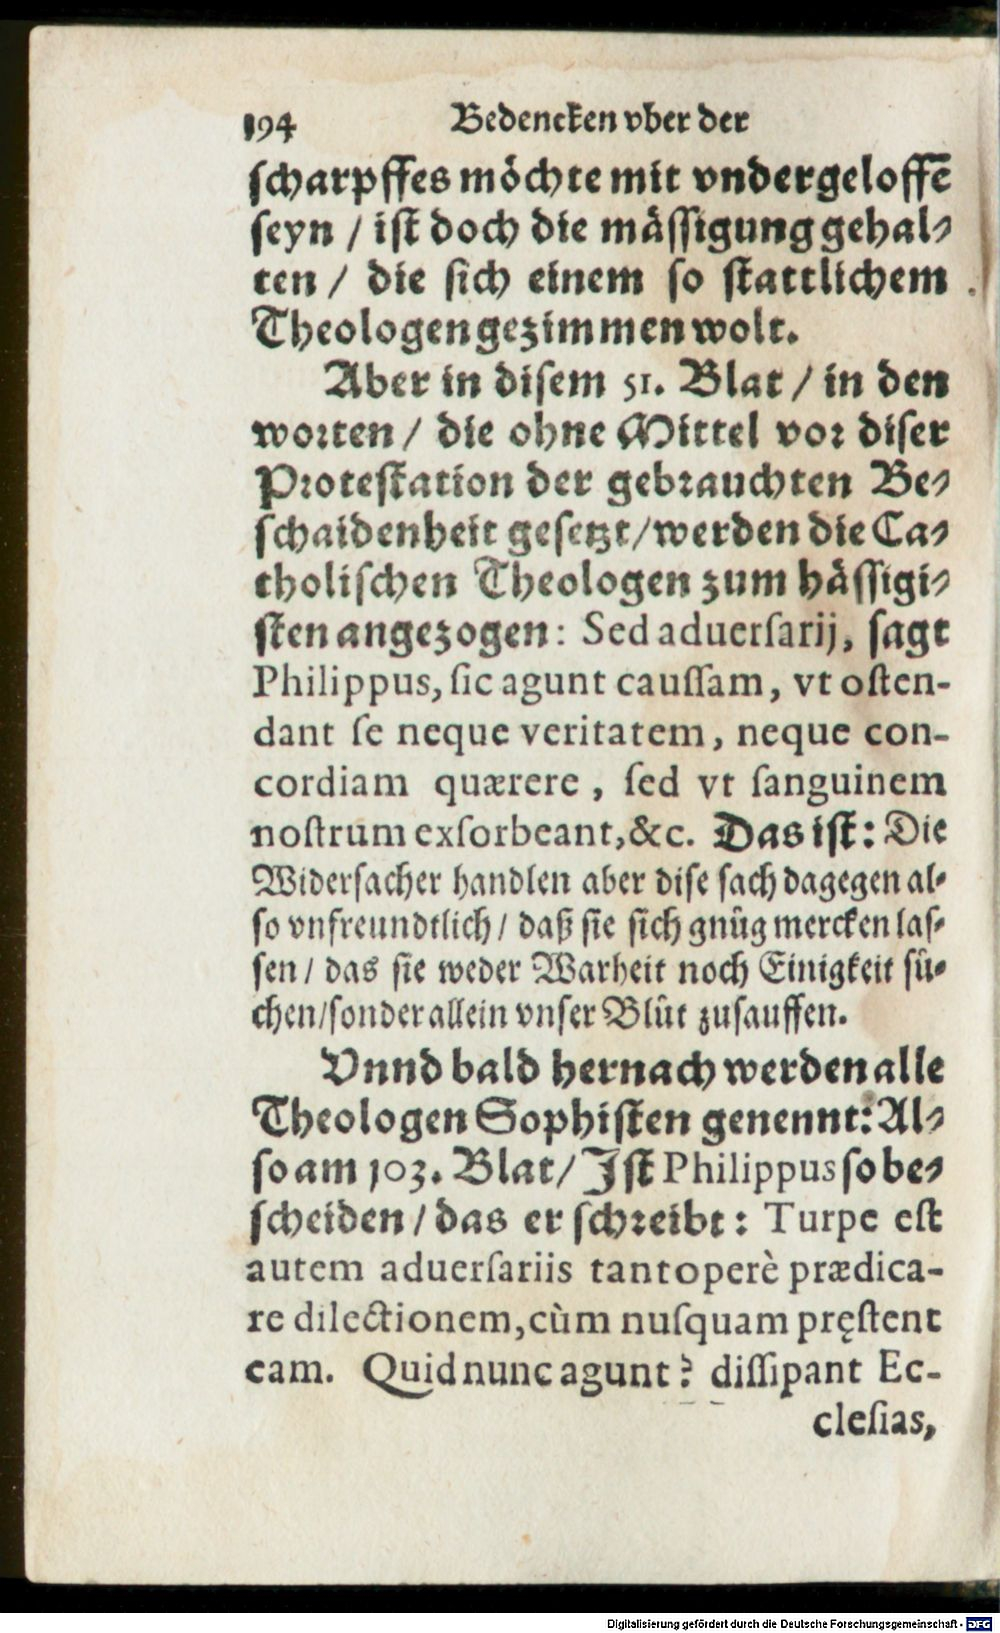 194 Bedencken vber der
scharpffes möchte mit vndergeloffē
seyn / ist doch die mässigung gehal⸗
ten / die sich einem so stattlichem
Theologen gezimmen wolt.
Aber in disem 51. Blat / in den
worten / die ohne Mittel vor diser
Protestation der gebrauchten Be⸗
schaidenheit gesetzt / werden die Ca⸗
tholischen Theologen zum hässigi⸗
sten angezogen: Sed aduersarij, sagt
Philippus, sic agunt caussam, vt osten-
dant se neque veritatem, neque con-
cordiam quærere, sed vt sanguinem
nostrum exsorbeant, &c. Das ist: Die
Widersacher handlen aber dise sach dagegen al⸗
so vnfreundtlich / daß sie sich gnůg mercken las⸗
sen / das sie weder Warheit noch Einigkeit sů⸗
chen / sonder allein vnser Blůt zusauffen.
Vnnd bald hernach werden alle
Theologen Sophisten genennt: Al⸗
so am 103. Blat / Ist Philippus so be⸗
scheiden / das er schreibt: Turpe est
autem aduersariis tantoperè prædica-
re dilectionem, cùm nusquam pręstent
eam. Quid nunc agunt? dissipant Ec-
clesias,
Digitalisierung gefördert durch die Deutsche Forschungsgemeinschaft - DFG